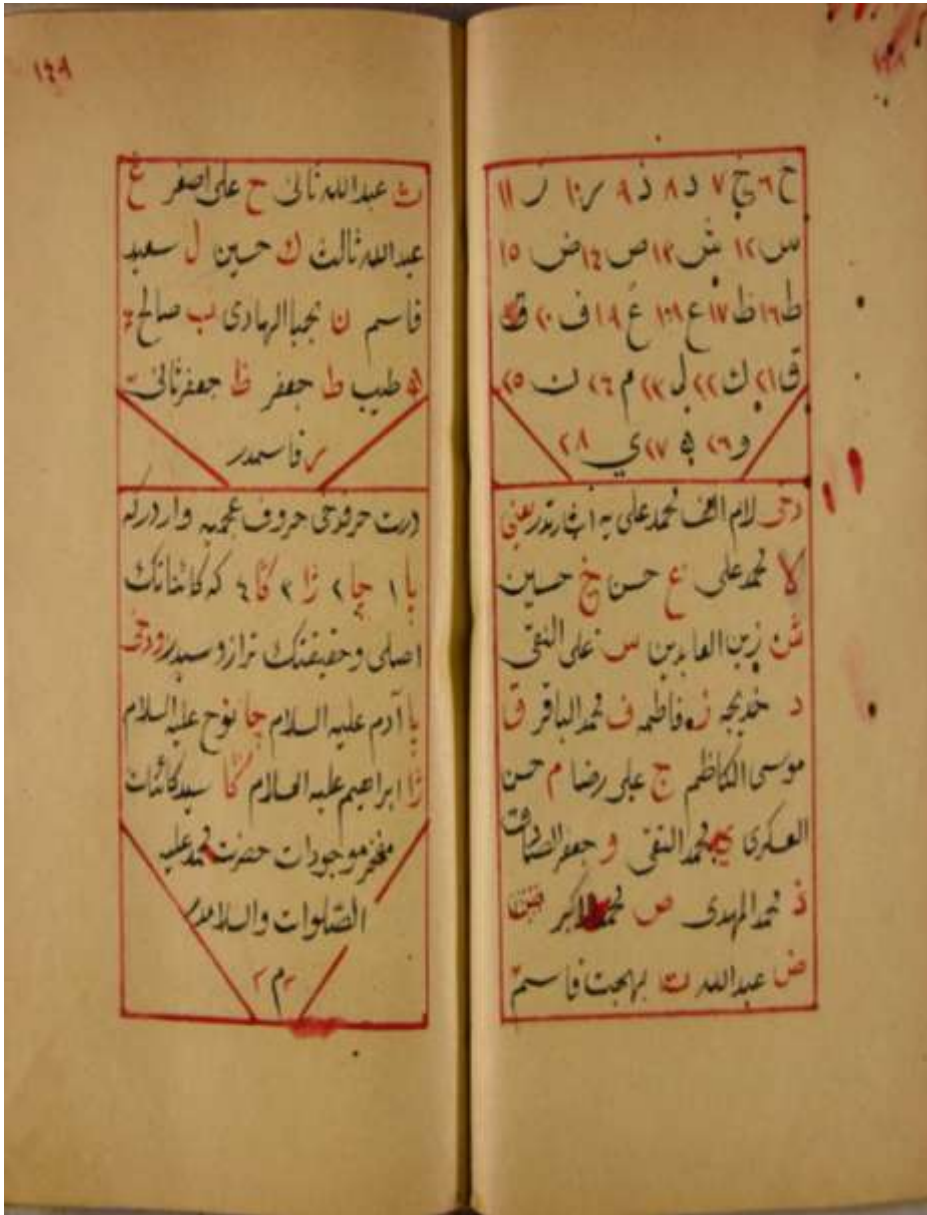 ح ٦ خ ٧ د ٨ ذ ٩ ر ١٠ ز ١١
س ١٢ ش ١٣ ص ١٤ ض ١٥
ط ١٦ ظ ١٧ ع ١٨ غ ١٩ ف ٢٠
ق ٢١ ك ٢٢ ل ٢٣ م ٢٤ ن ٢٥
و ٢٦ ه ٢٧ ي ٢٨
دخى لام الف محمد على يه اشارتدر يعنى
لا محمد على ع حسن خ حسين
ش زين العابدين س على النقى
د خديجه ز فاطمه ف محمد الباقر ق
موسى الكاظم ج على رضا م حسن
العسكرى ي محمد التقى و جعفر الصادق
ذ محمد المهدى ص محمد الاكبر
ض عبدالله ت بهجت قاسم
١٤٩
ث عبدالله ثانى ح على اصغر غ
عبدالله ثالث ك حسين ل سعيد
قاسم ن يحيا الهادى ب صالح
ه طيب ط جعفر ظ جعفر ثانى
ر قاسمدر
درت حرف دخى حروف عجميه واردركه
پا ١ چا ٢ ژا ٣ گا ٤ كه كائناتك
اصلى وحقيقتك ترازوسيدر ودخى
پا آدم عليه السلام چا نوح عليه السلام
ژا ابراهيم عليه السلام گا سيد كائنات
مفخر موجودات حضرت محمد عليه
الصلوات والسلامدر
م